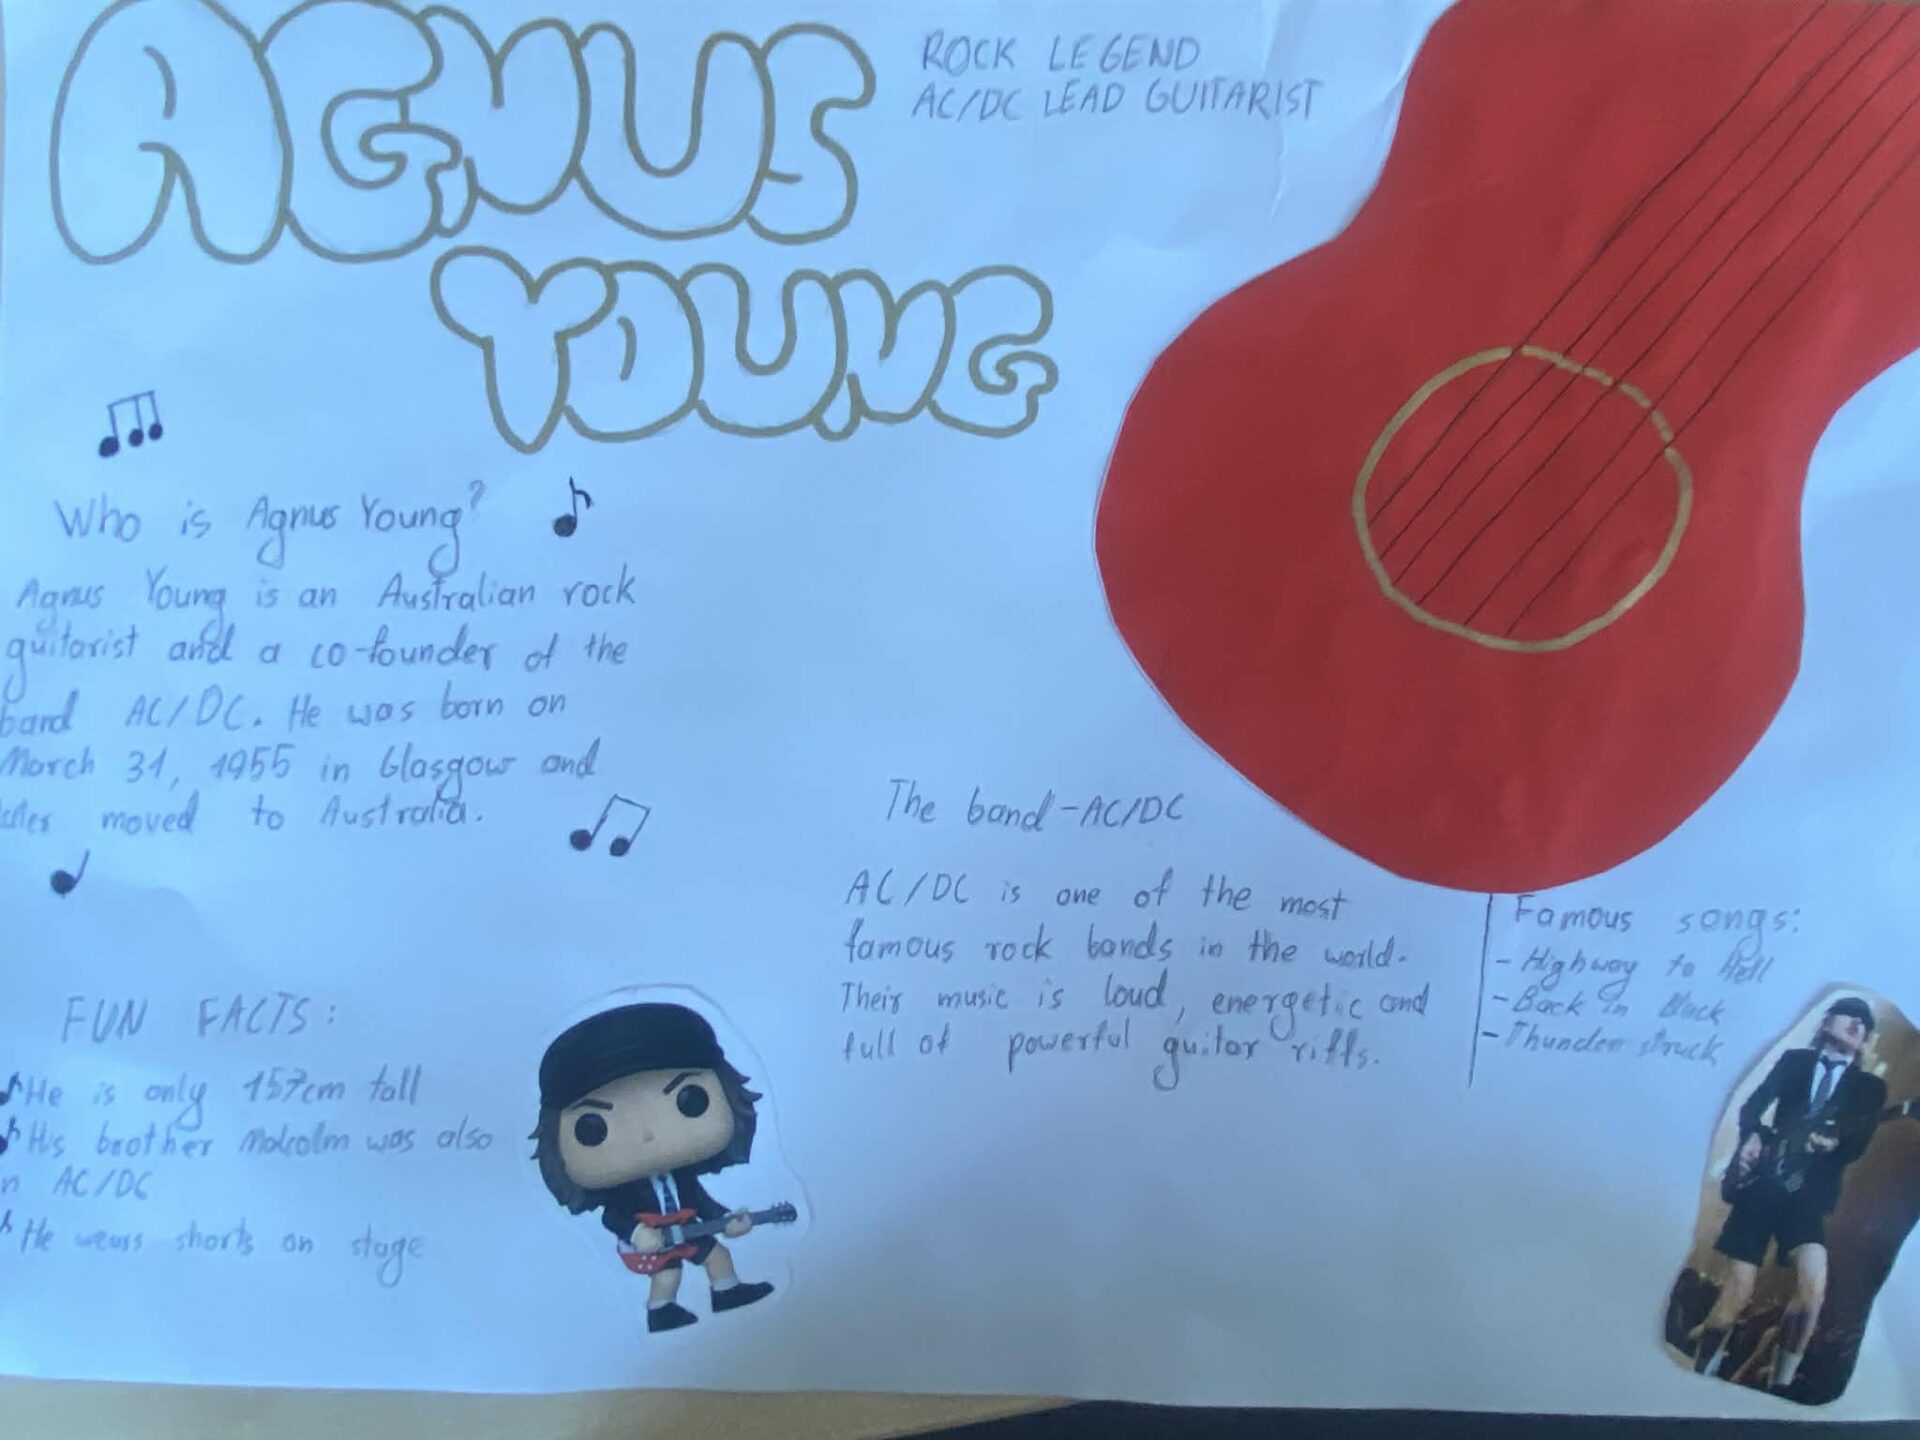 AGNUS
YOUNG
ROCK LEGEND
AC/DC LEAD GUITARIST
Who is Agnus Young?
Agnus Young is an Australian rock
guitarist and a co-founder of the
band AC/DC. He was born on
March 31, 1955 in Glasgow and
later moved to Australia.
FUN FACTS:
He is only 157cm tall
His brother Malcolm was also
in AC/DC
He wears shorts on stage
The band - AC/DC
AC/DC is one of the most
famous rock bands in the world.
Their music is loud, energetic and
full of powerful guitar riffs.
Famous songs:
- Highway to Hell
- Back in Black
- Thunder struck